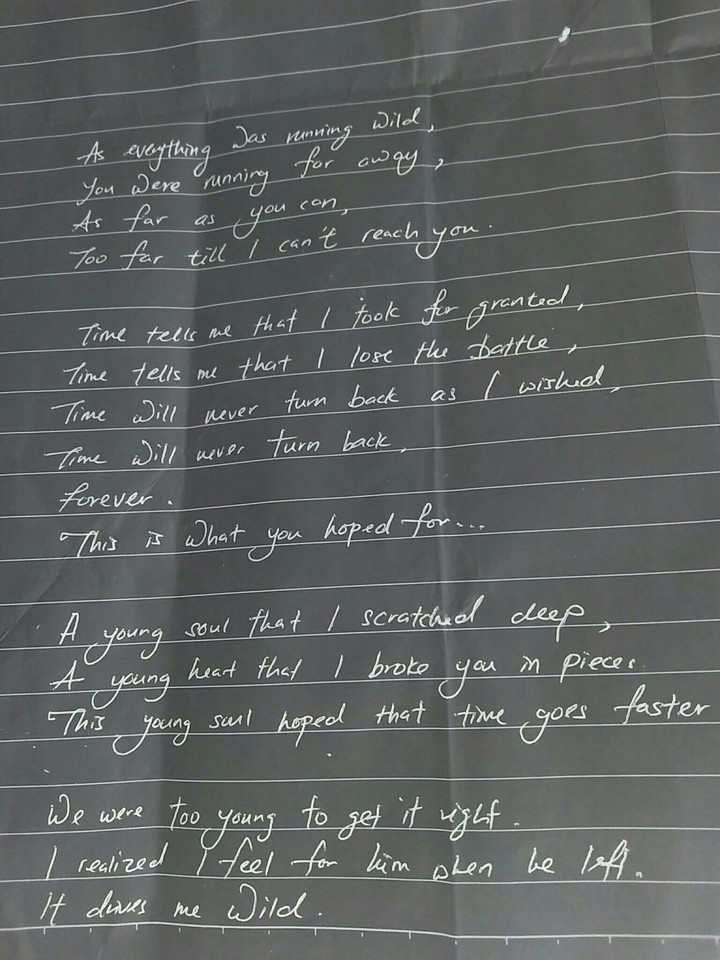 As everything was running wild,
You were running far away,
As far as you can,
Too far till I can't reach you.
Time tells me that I took for granted,
Time tells me that I lose the battle,
Time will never turn back as I wished,
Time will never turn back,
forever.
This is what you hoped for...
A young soul that I scratched deep,
A young heart that I broke you in pieces.
This young soul hoped that time goes faster
We were too young to get it right.
I realized I feel for him when he left.
It drives me wild.